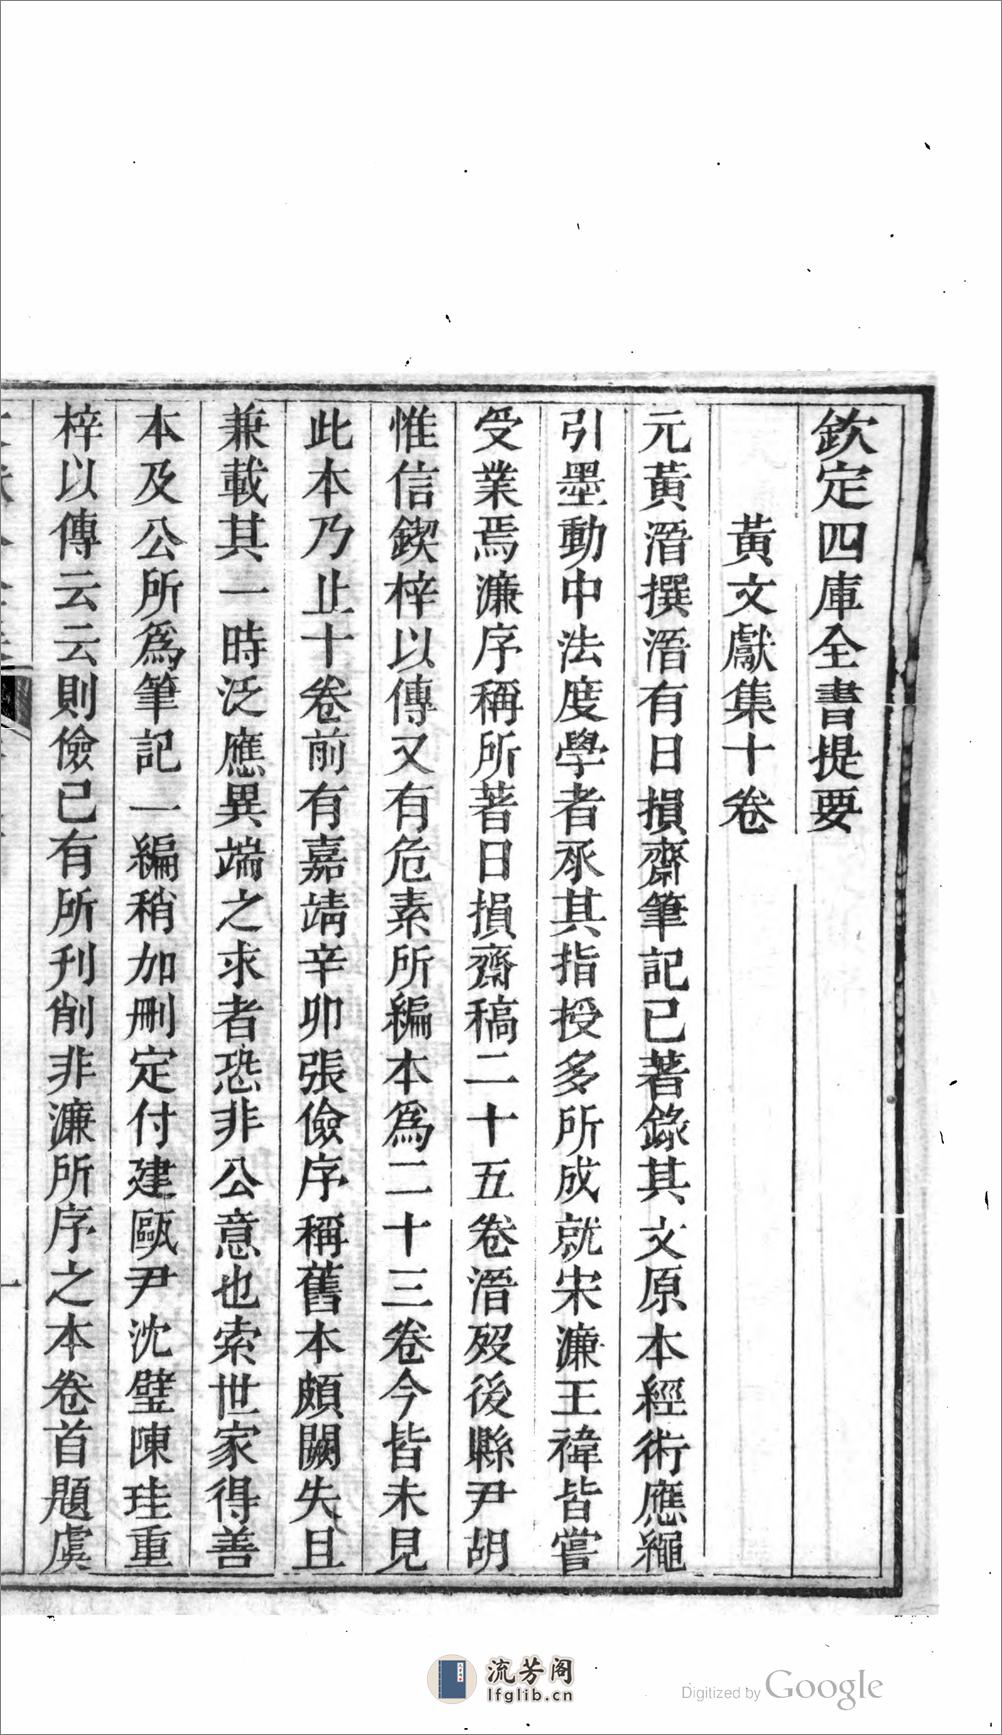 欽定四庫全書提要
黃文獻集十卷
元黃溍撰溍有日損齋筆記已著錄其文原本經術應繩
引墨動中法度學者承其指授多所成就宋濂王褘皆嘗
受業焉濂序稱所著日損齋稿二十五卷溍歿後縣尹胡
惟信鍥梓以傳又有危素所編本爲二十三卷今皆未見
此本乃止十卷前有嘉靖辛卯張儉序稱舊本頗闕失且
兼載其一時泛應異端之求者恐非公意也索世家得善
本及公所爲筆記一編稍加刪定付建甌尹沈璧陳珪重
梓以傳云云則儉已有所刋削非濂所序之本卷首題虞
一
流芳阁
lfglib.cn
Digitized by Google